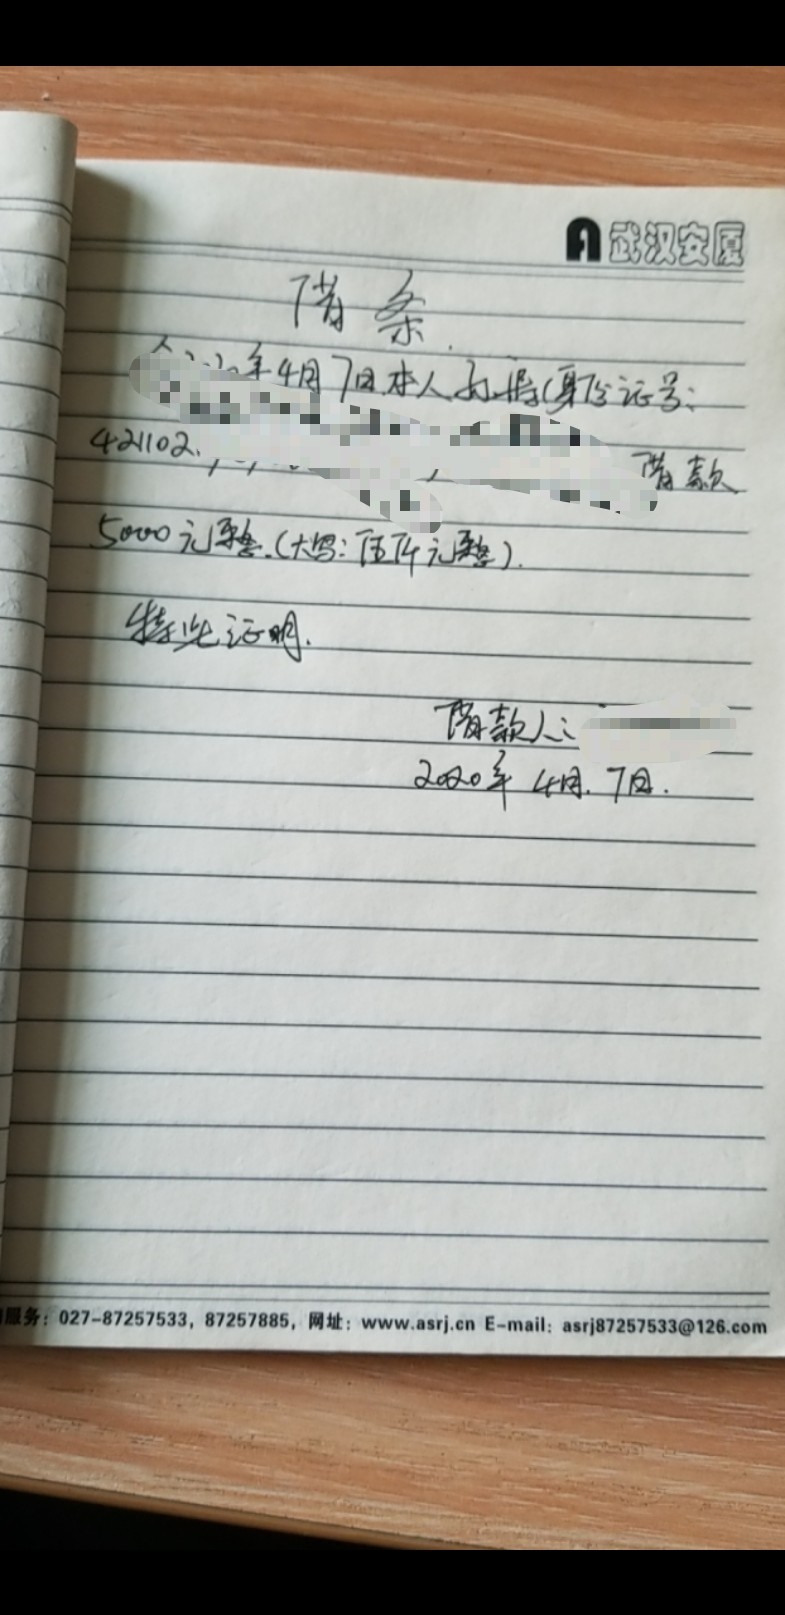 武汉安厦
借条.
年4月7日本人 (身份证号:
421102. 借款
5000元整.(大写:伍仟元整).
特此证明.
借款人:
2020年 4月.7日.
服务:027-87257533,87257885,网址:www.asrj.cn E-mail:asrj87257533@126.com